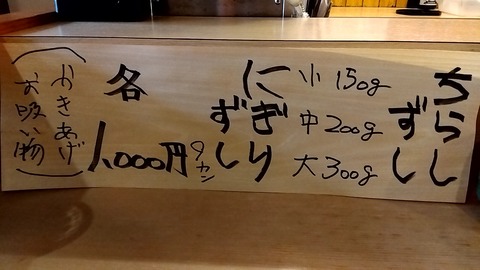 ちらし
ずし
小 150g
中 200g
大 300g
にぎり
ずし
9カン
各
1,000円
(かきあげ
お吸い物)